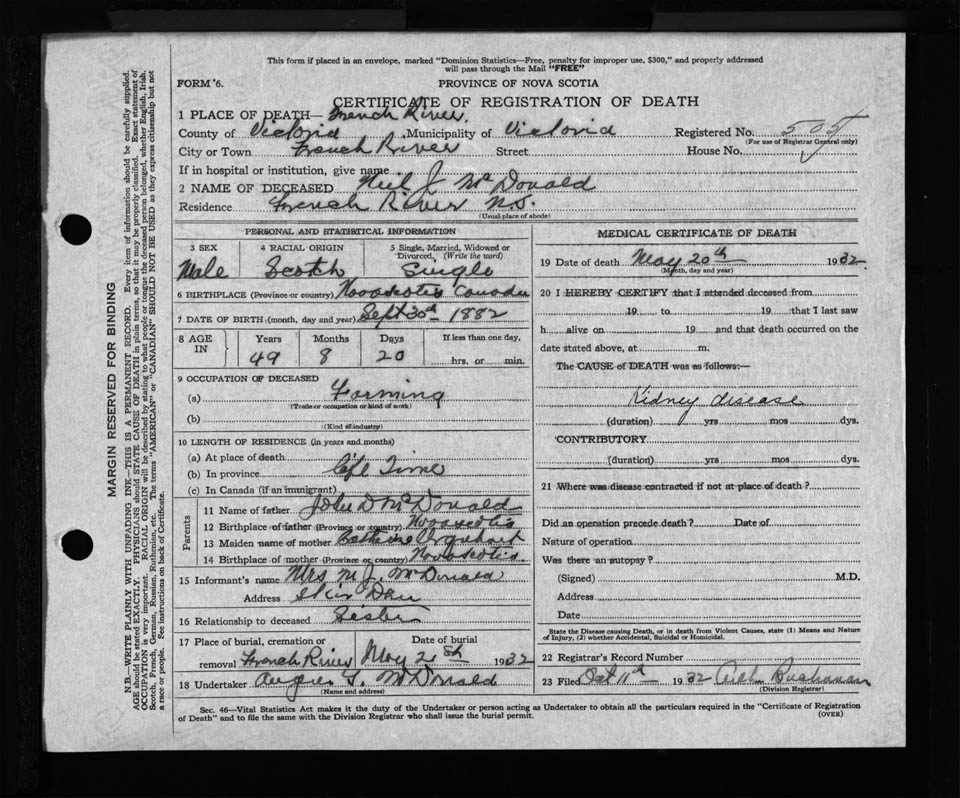 This form if placed in an envelope, marked "Dominion Statistics—Free, penalty for improper use, $300," and properly addressed
will pass through the Mail "FREE"
FORM '6.
PROVINCE OF NOVA SCOTIA
CERTIFICATE OF REGISTRATION OF DEATH
1 PLACE OF DEATH— French River.
County of Victoria Municipality of Victoria Registered No. 505
(For use of Registrar General only)
City or Town French River Street House No.
If in hospital or institution, give name
2 NAME OF DECEASED Neil J McDonald
Residence French River N.S.
(Usual place of abode)
PERSONAL AND STATISTICAL INFORMATION
3 SEX 4 RACIAL ORIGIN 5 Single, Married, Widowed or
Divorced, (Write the word)
Male Scotch Single
6 BIRTHPLACE (Province or country) Novascotia Canada
7 DATE OF BIRTH (month, day and year) Sept 30th 1882
8 AGE IN Years Months Days If less than one day,
49 8 20 hrs. or min.
9 OCCUPATION OF DECEASED
(a) Farming
(Trade or occupation or kind of work)
(b)
(Kind of industry)
10 LENGTH OF RESIDENCE (in years and months)
(a) At place of death
(b) In province life Time
(c) In Canada (if an immigrant)
Parents
11 Name of father John D McDonald
12 Birthplace of father (Province or country) Novascotia
13 Maiden name of mother Urquhart
14 Birthplace of mother (Province or country) Novascotia.
15 Informant's name Mrs M. J. McDonald
Address Skir Dhu
16 Relationship to deceased Sister
17 Place of burial, cremation or Date of burial
removal French River May 2 1932
18 Undertaker Angus McDonald
(Name and address)
MEDICAL CERTIFICATE OF DEATH
19 Date of death May 20th 1932.
(Month, day and year)
20 I HEREBY CERTIFY that I attended deceased from
19 to 19 that I last saw
h alive on 19 and that death occurred on
date stated above, at m.
The CAUSE of DEATH was as follows:—
Kidney disease
(duration) yrs mos dys.
CONTRIBUTORY
(duration) yrs mos dys.
21 Where was disease contracted if not at place of death?
Did an operation precede death? Date of
Nature of operation
Was there an autopsy?
(Signed) M.D.
Address
Date
State the Disease causing Death, or in death from Violent Causes, state (1) Means and Nature
of Injury, (2) whether Accidental, Suicidal or Homicidal.
22 Registrar's Record Number
23 Filed Oct 11th 1932 Buchanan
(Division Registrar)
Sec. 46—Vital Statistics Act makes it the duty of the Undertaker or person acting as Undertaker to obtain all the particulars required in the "Certificate of Registration
of Death" and to file the same with the Division Registrar who shall issue the burial permit.
(OVER)
MARGIN RESERVED FOR BINDING
N.B.—WRITE PLAINLY WITH UNFADING INK—THIS IS A PERMANENT RECORD. Every item of information should be carefully supplied.
AGE should be stated EXACTLY. PHYSICIANS should STATE CAUSE OF DEATH in plain terms, so that it may be properly classified. Exact statement of
OCCUPATION is very important. RACIAL ORIGIN will be described by stating to what people or tongue the deceased person belonged, whether English, Irish,
Scotch, French, German, Russian, Ruthenian, etc. The terms "AMERICAN" or "CANADIAN" SHOULD NOT BE USED as they express citizenship but not
a race or people. See instructions on back of Certificate.